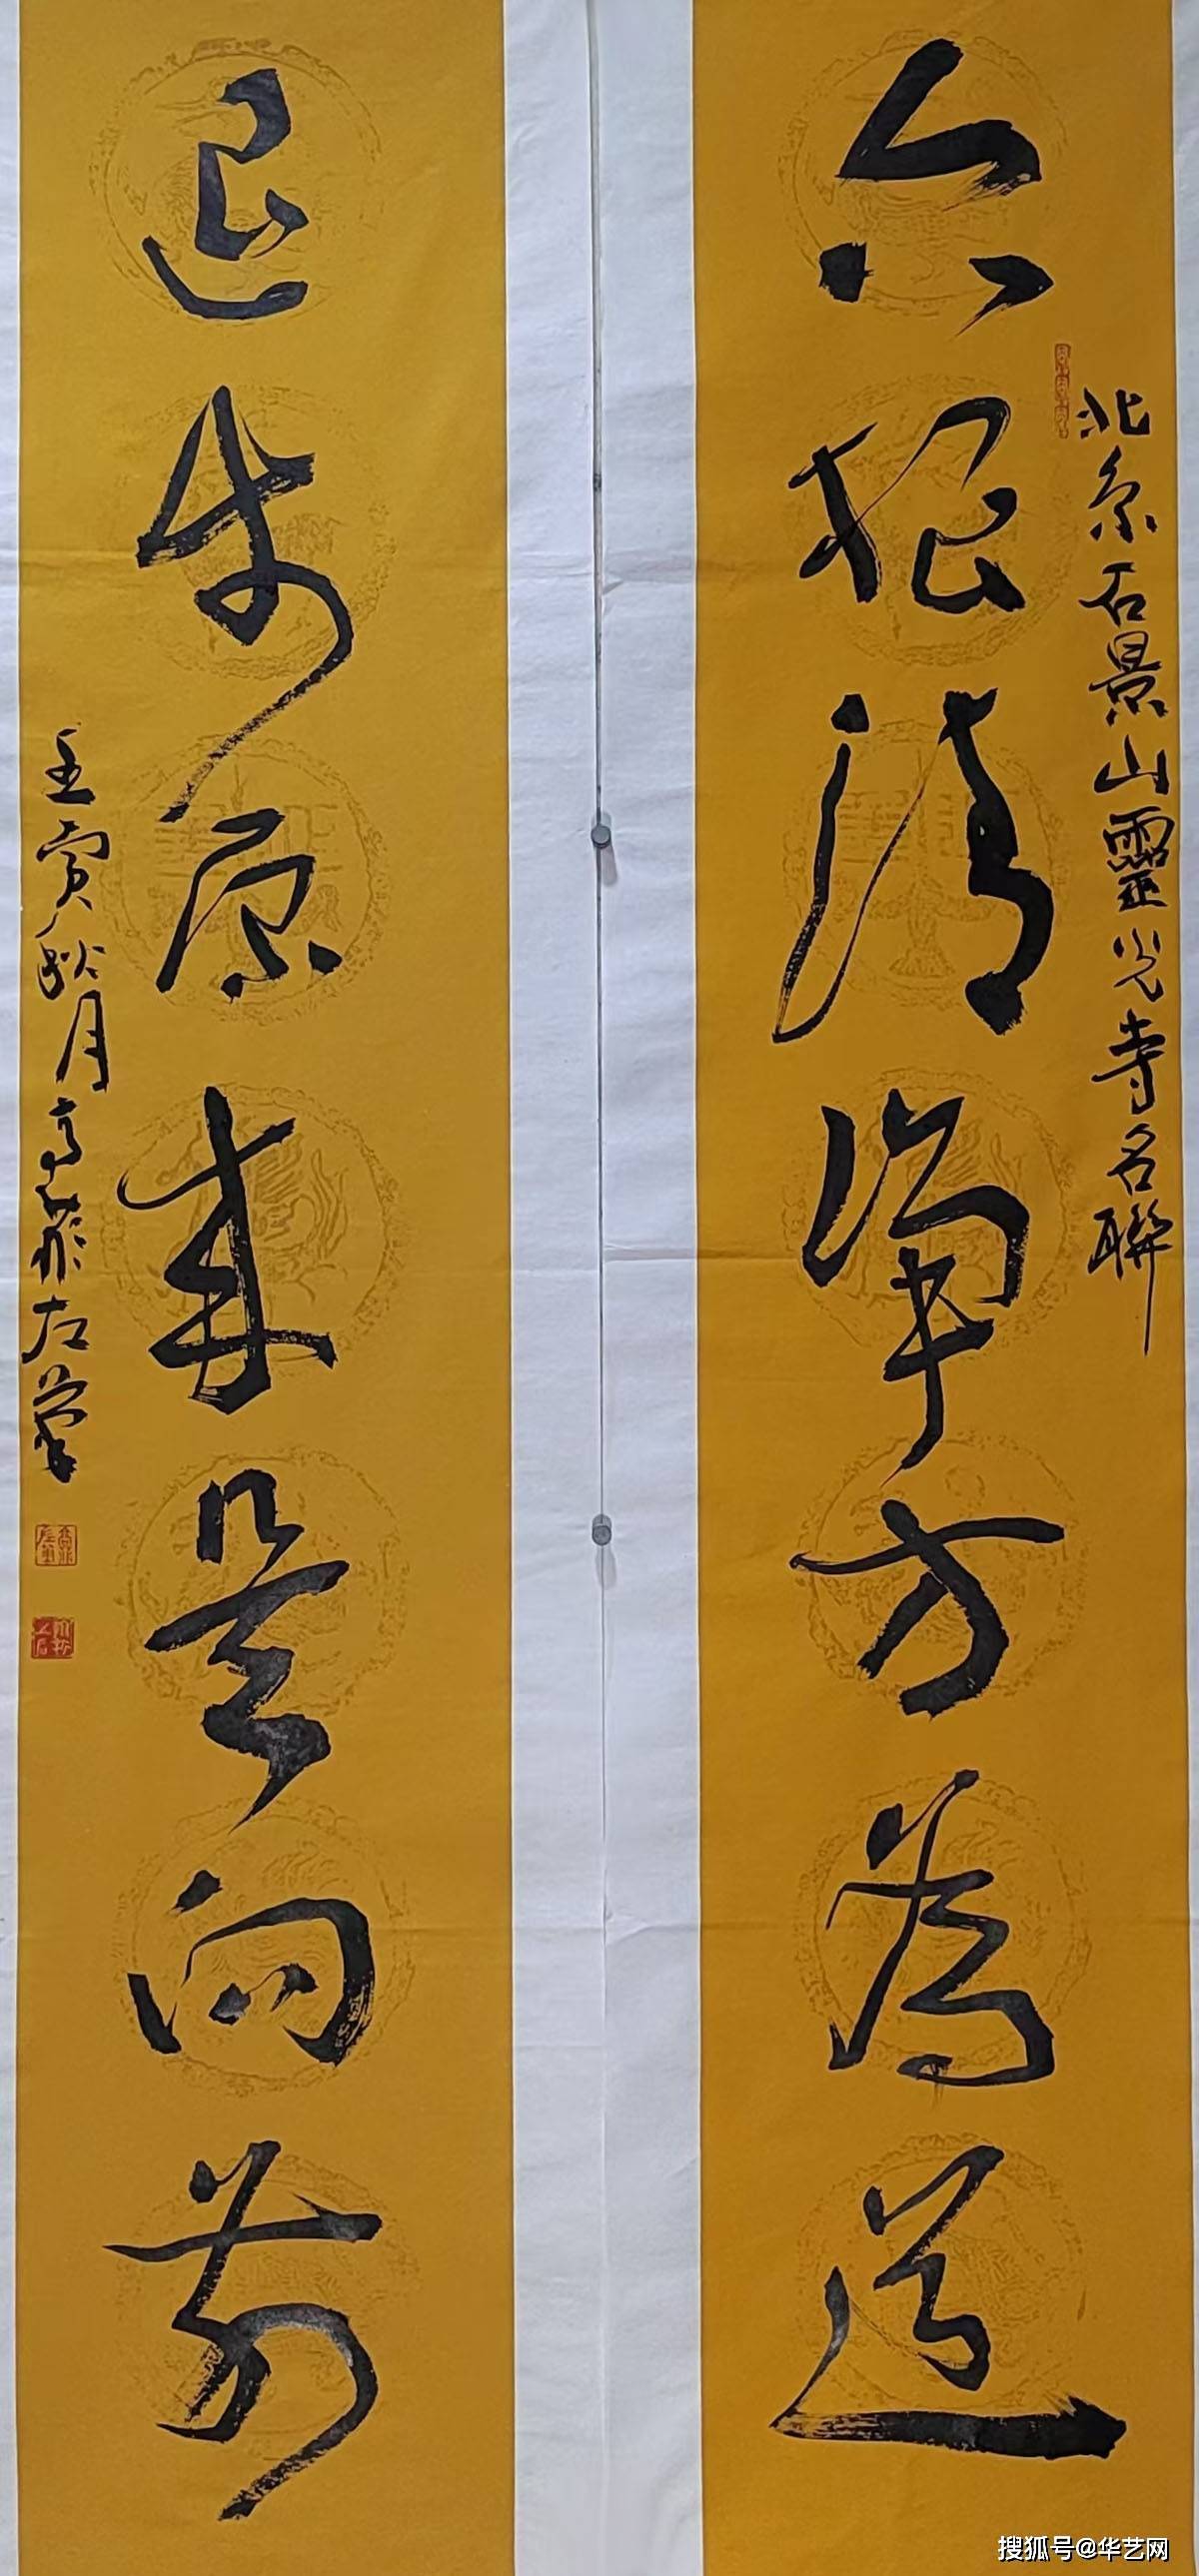 六根清净方为道
北京石景山靈光寺名聯
退步原来是向前
壬寅秋月高菲左筆
搜狐号@华艺网